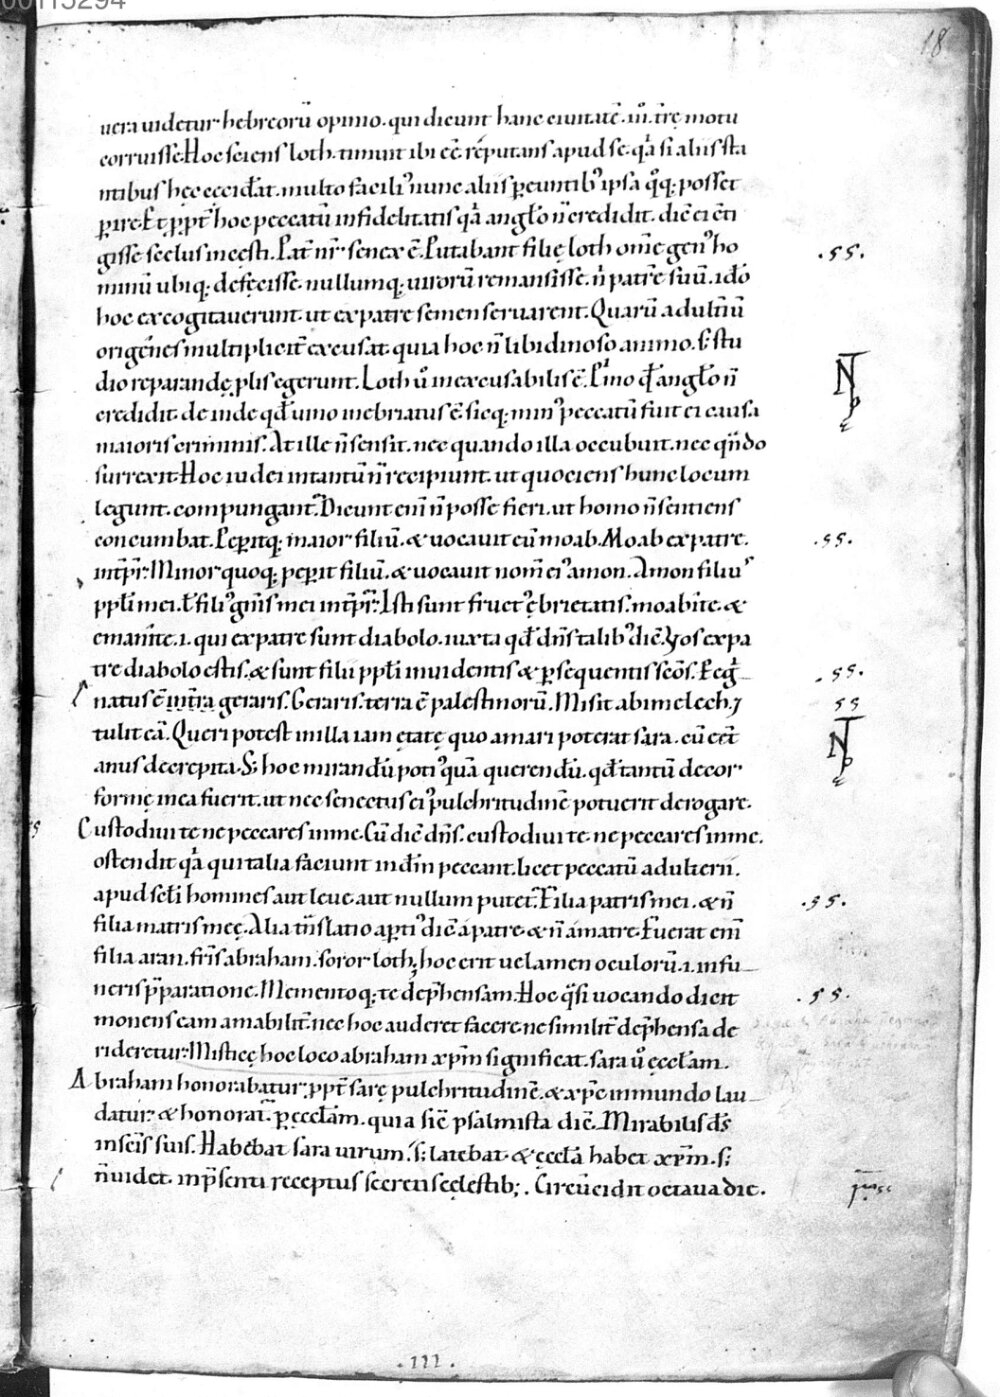 00115294
18
uera uidetur hebreorū opinio. qui dicunt hanc ciuitatē. in̊ t̄rę motu
corruisse. Hoc sciens loth. timuit ibi cē. reputans apud se. qͣ si aliis sta
ntibus hęc ceciderat. multo facili᾿ nunc aliis ꝑeuntib᾿ ipsa q̊q; posset
ꝑire. Et ꝓpt̄ hoc peccatū infidelitatis qͣ anglo n̄ credidit. dic̄ ei cti
gisse scelus incesti. Pat̄ nr̄ senex ē. Putabant filię loth om̄e gen᾿ ho
minū ubiq; defecisse. nullumq; uirorū remansisse. n̄ patrē suū. ido
hoc excogitauerunt. ut ex patre semen seruarent. Quarū adult̄iū
origenes multiplicit̄ excusat. quia hoc n̄ libidinoso animo. s; stu
dio reparandę ꝓlis egerunt. Loth u̅ inexcusabilis ē. Primo qd̄ anglo n̄
credidit. deinde qd̄ uino inebriatus ē sicq; min᾿ peccatū fuit ei causa
maioris criminis. At ille n̄ sensit. nec quando illa occubuit. nec qn̄do
surrexit. Hoc iudei intantū n̄ recipiunt. ut quociens hunc locum
legunt. compungant᷑. Dicunt eni n̄ posse fieri. ut homo n̄ sentiens
concumbat. Peꝑitq; maior filiū. & uocauit eū moab. Moab ex patre.
int̄ꝑr᷑. Minor quoq; peꝑit filiū. & uocauit nom̄ ei᾿ amon. Amon filiu᾿
ppli mei. ł fili᾿ gn̄is mei int̄ꝑr᷑. Isti sunt fruct᾿ ębrietatis. moabitę. &
emanitę. i. qui ex patre sunt diabolo. iuxta qd̄ dn̄s talib᾿ dic̄. Vos ex pa
tre diabolo estis. & sunt filii ppli inuidentis & ꝑsequentis scōs. Pegͥ
natus ē intra geraris. Geraris. terra ē palestinorū. Misit abimelech. ⁊
tulit eā. Queri potest in illa iam ętate quo amari poterat sara. cū cēt
anus decrepita. S; hoc mirandū poti᾿ quā querendū. qd̄ tantū decor᾿
formę in ea fuerit. ut nec senectus ei᾿ pulchritudinē potuerit derogare.
Custodiui te ne peccares in me. Cū dic̄ dn̄s. custodiui te. ne peccares in me.
ostendit qͣ qui talia faciunt in dm̄ peccant. licet peccatū adulterii.
apud scłi homines aut leue aut nullum putet᷑. Filia patris mei. & n̄
filia matris meę. Alia tn̄slatio aꝑti᾿ dic̄ a patre & n̄ a matre. Fuerat eni
filia aran. fr̄is abraham. soror loth. hoc erit uelamen oculorū. i. in fu
neris p̄paratione. Memento q; te dep̄hensam. Hoc qͣsi uocando dicit
monens eam amabilit̄. nec hoc auderet facere. ne similit̄ dep̄hensa de
rideretur. Misticę hoc loco abraham xp̄m significat. sara u̅ ęccłam.
Abraham honorabatur. ꝓpt̄ sarę pulchritudinē. & xp̄c in mundo lau
datur. & honorat᷑. ꝑ ęccłam. quia sic̄ psalmista dic̄. Mirabilis ds̄
in scis̄ suis. Habebat sara uirum. s; latebat. & ęccła habet xp̄m. s;
n̄ uidet. in p̄senti receptus secreti scęlestib;. Circūcidit octaua die.
.ss.
.ss.
.ss.
ss
.ss.
.ss.
.III.